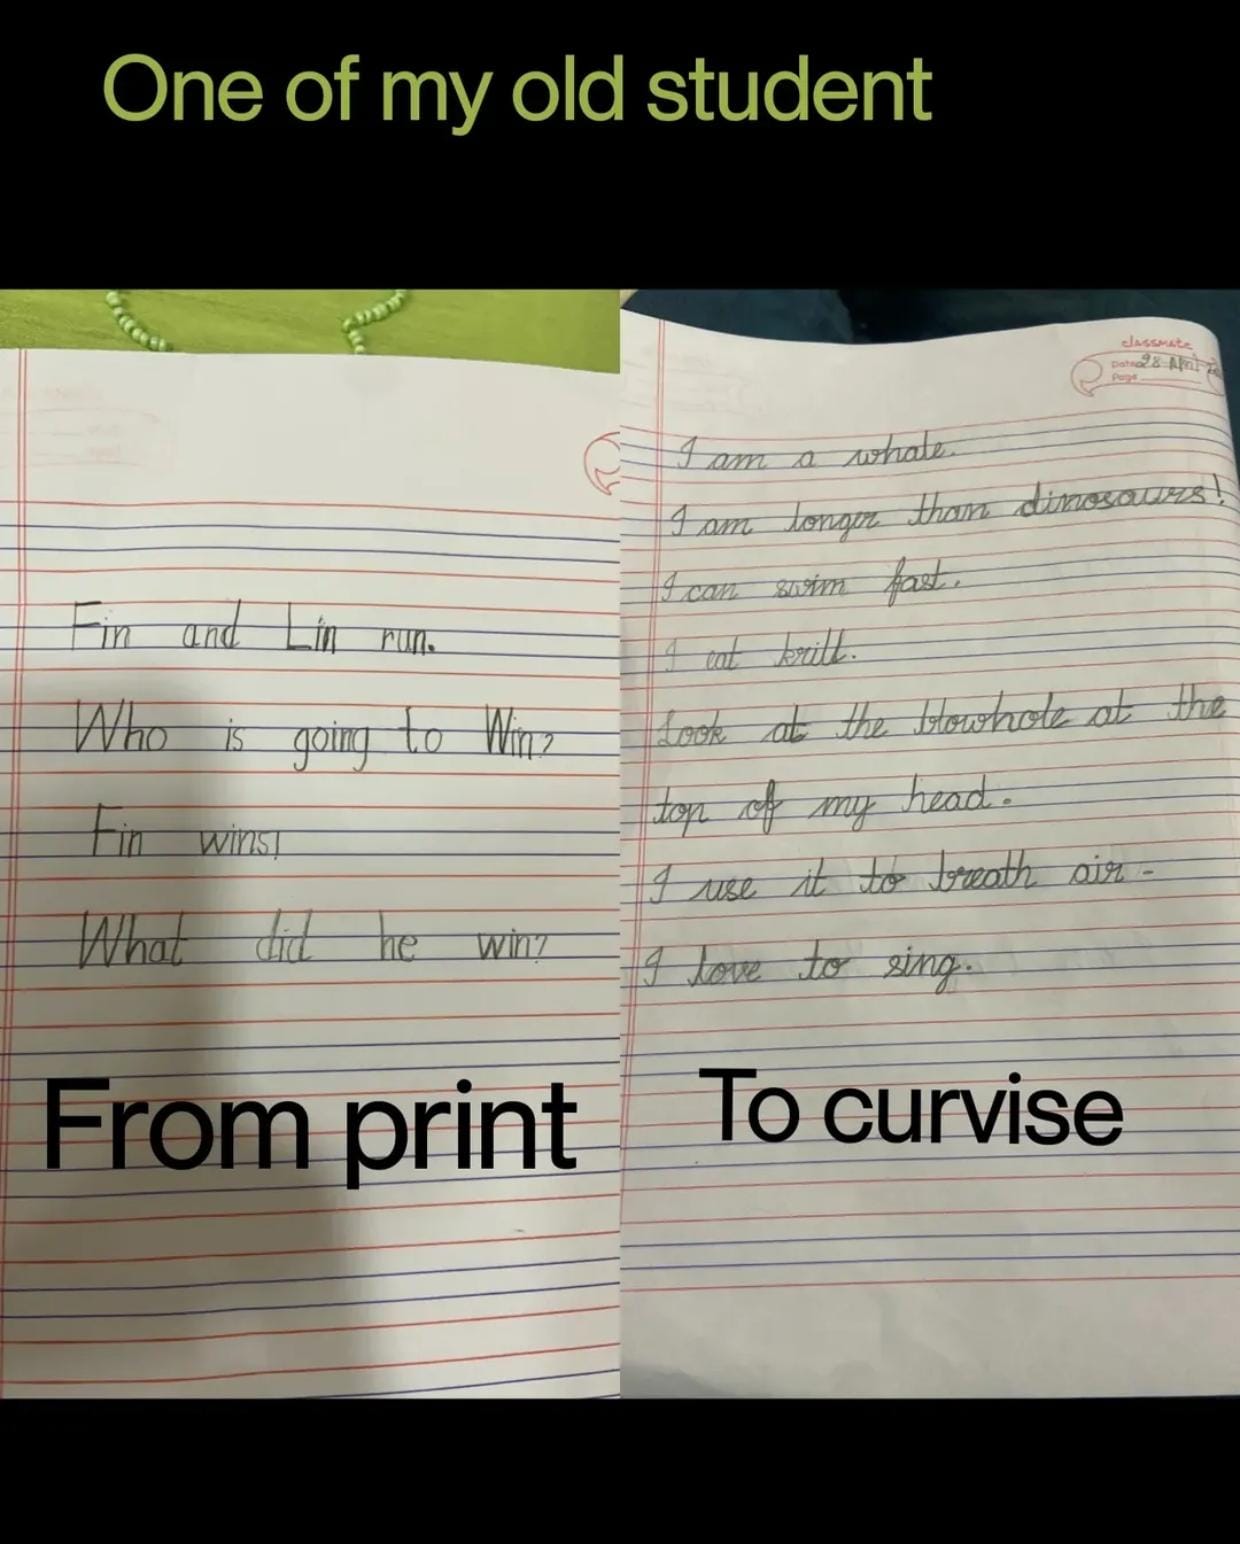 One of my old student
Fin and Lin run.
Who is going to Win?
Fin wins!
What did he win?
From print
classmate
Date 28 April
Page
I am a whale.
I am longer than dinosaurs!
I can swim fast.
I eat krill.
Look at the blowhole at the
top of my head.
I use it to breath air.
I love to sing.
To curvise